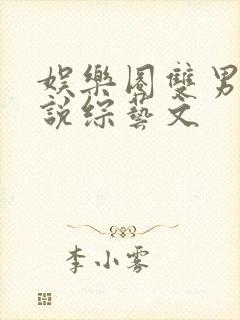 娛樂圈雙男
說綜藝文
李小雾